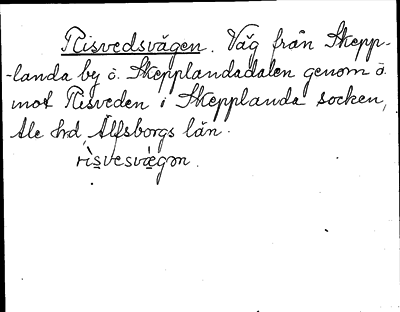 Risvedsvägen. Väg från Skepp-
-landa by ö. Skepplandadalen genom ö.
mot Risveden i Skepplanda socken,
Ale hd, Älfsborgs län.
rìsvesvægən.